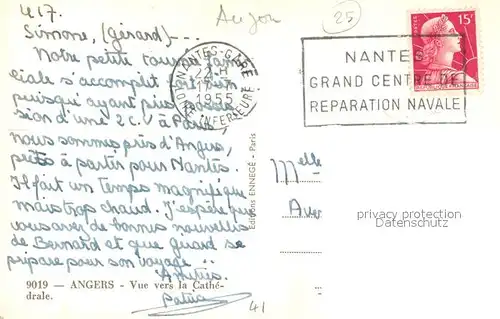 4.17.
Anjou
25
Simone, (Gérard) ---
Notre petite tournée
ciale s'accomplit
puisqu'ayant pris
sion d'une 2 C.V à Paris,
nous sommes près d'Angers,
prêts à partir pour Nantes.
Il fait un temps magnifique
mais trop chaud. J'espère que
vous avez de bonnes nouvelles
de Bernard et que Guard se
prépare pour son voyage..
Amitiés.
Patrice
NANTES-GARE
22 H
17-7
1955
LOIRE INFERIEURE
NANTES
GRAND CENTRE DE
REPARATION NAVALE
15F
POSTES
Editions ENNEGÉ - Paris
Melle
Aver
privacy protection
Datenschutz
9019 — ANGERS - Vue vers la Cathé-
drale.
41